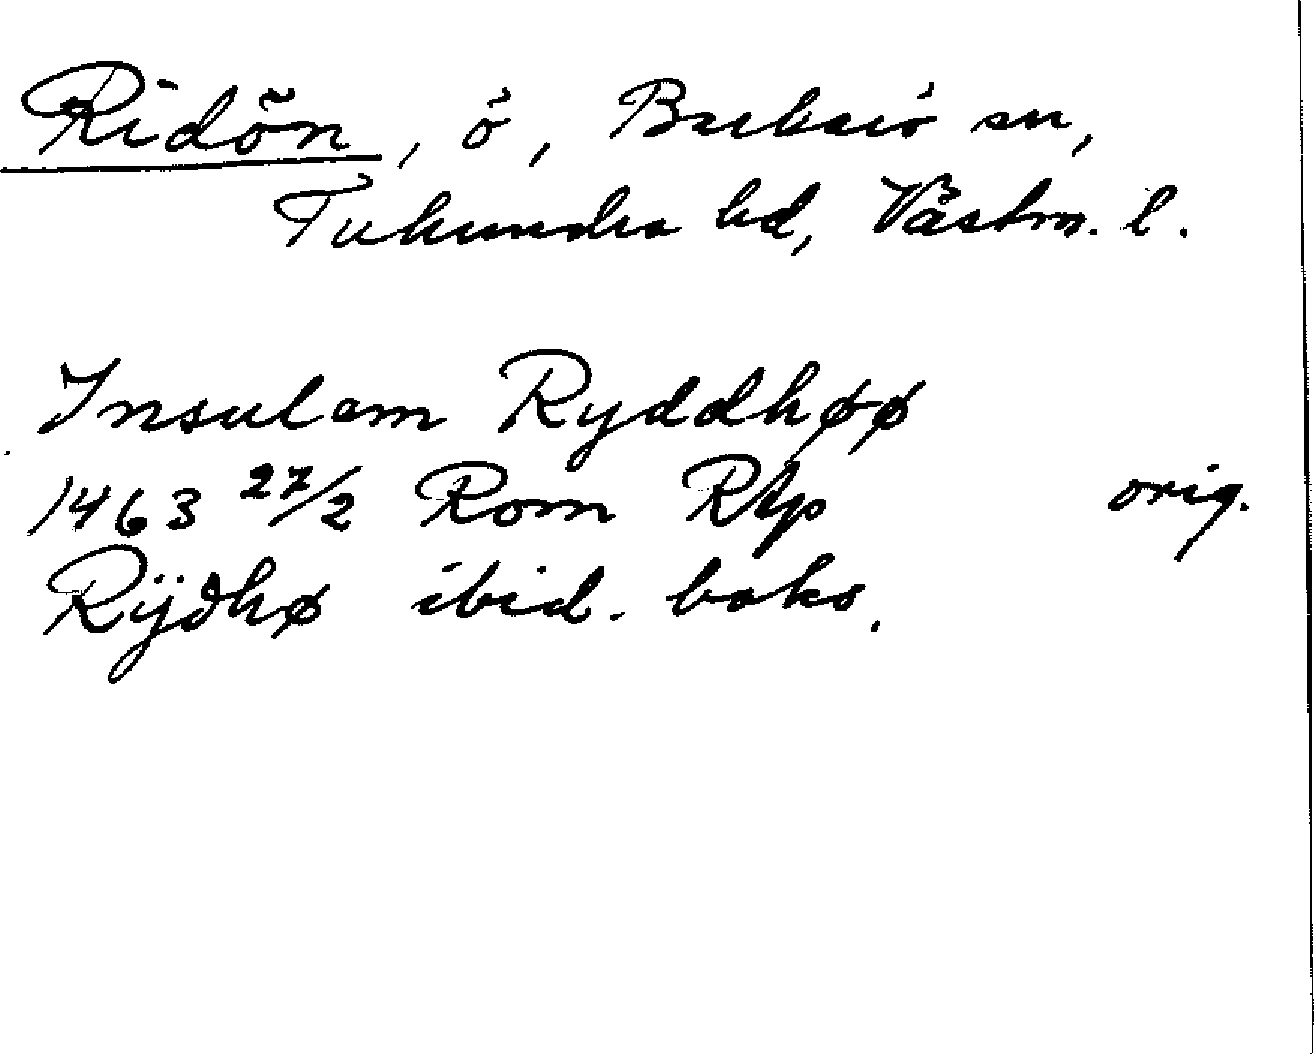 Ridön, ö, Barkarö sn,
Tuhundra hd, Västm. l.
Insulam Ryddhøø
1463 27/2 Rom RAp orig.
Rÿdhø ibid. baks.